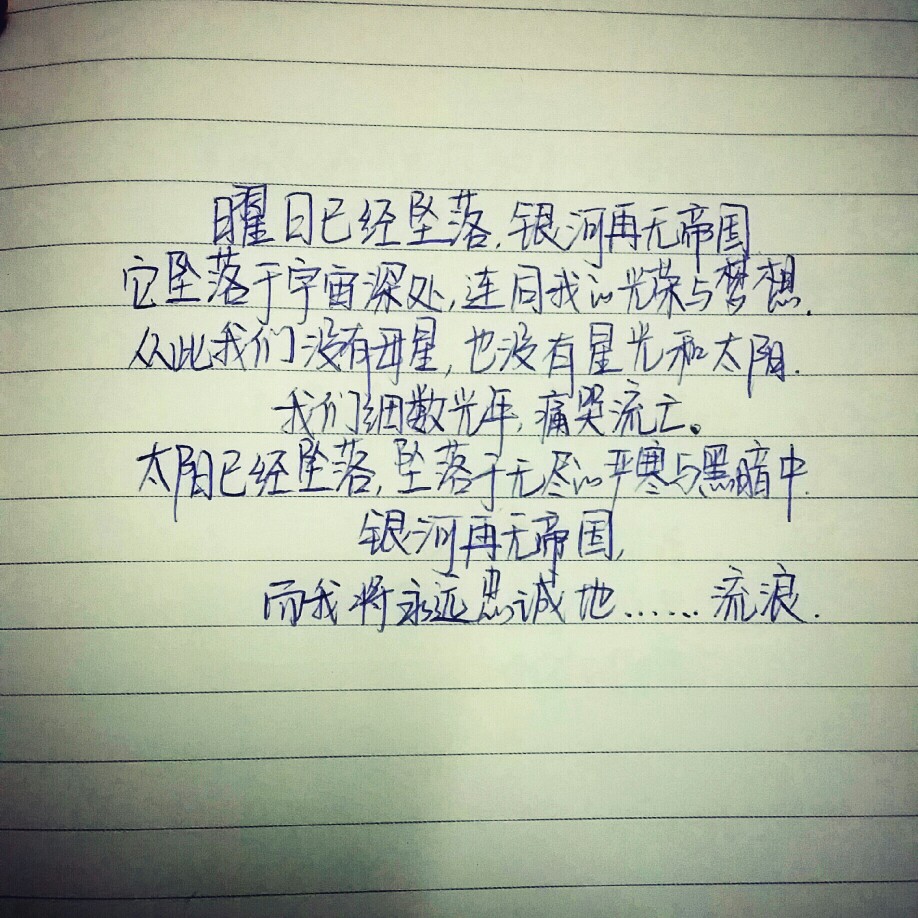 曜日已经坠落,银河再无帝国
它坠落于宇宙深处,连同我的光荣与梦想.
从此我们没有母星,也没有星光和太阳.
我们细数光年,痛哭流亡。
太阳已经坠落,坠落于无尽的严寒与黑暗中.
银河再无帝国,
而我将永远忠诚地……流浪.